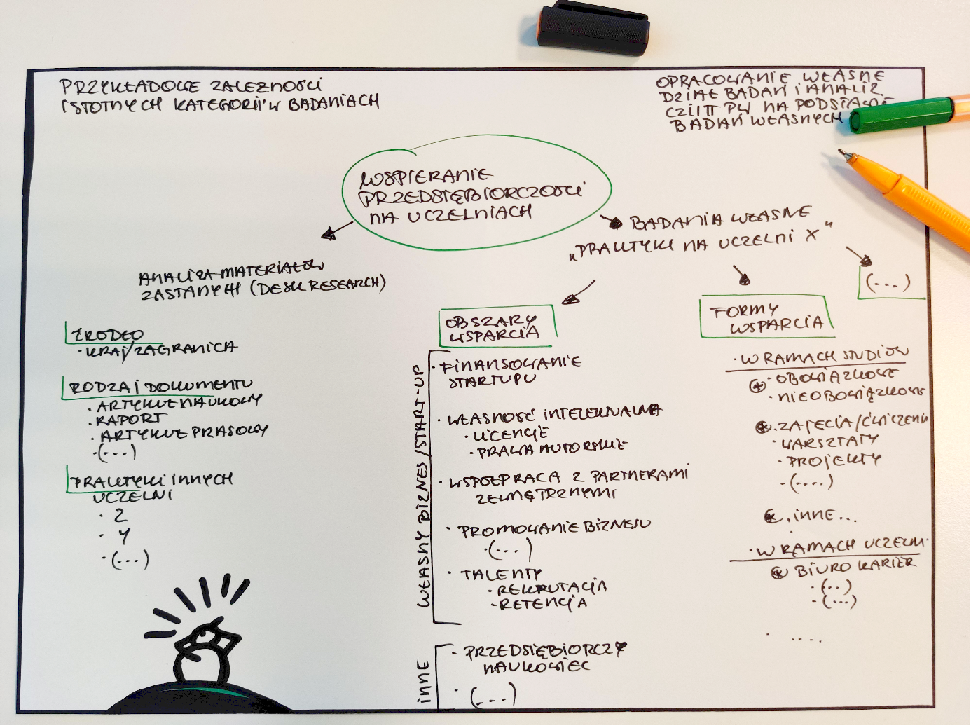 PRZYKŁADOWE ZALEŻNOŚCI
ISTOTNYCH KATEGORII W BADANIACH
OPRACOWANIE WŁASNE
DZIAŁ BADAŃ I ANALIZ
CZIITT PW NA PODSTAWIE
BADAŃ WŁASNYCH
WSPIERANIE
PRZEDSIĘBIORCZOŚCI
NA UCZELNIACH
BADANIA WŁASNE
„PRAKTYKI NA UCZELNI X"
(...)
ANALIZA MATERIAŁÓW
ZASTANYCH (DESK RESEARCH)
ŹRÓDŁO
· KRAJ/ZAGRANICA
RODZAJ DOKUMENTU
· ARTYKUŁ NAUKOWY
· RAPORT
· ARTYKUŁ PRASOWY
· (...)
PRAKTYKI INNYCH
UCZELNI
· Z
· Y
· (...)
OBSZARY
WSPARCIA
WŁASNY BIZNES/START-UP
· FINANSOWANIE
STARTUPU
· WŁASNOŚĆ INTELEKTUALNA
· LICENCJE
· PRAWA AUTORSKIE
· WSPÓŁPRACA Z PARTNERAMI
ZEWNĘTRZNYMI
· PROMOWANIE BIZNESU
· (...)
· TALENTY
· REKRUTACJA
· RETENCJA
INNE
· PRZEDSIĘBIORCZY
NAUKOWIEC
· (...)
FORMY
WSPARCIA
· W RAMACH STUDIÓW
· OBOWIĄZKOWE
· NIEOBOWIĄZKOWE
· ZAJĘCIA/ĆWICZENIA
· WARSZTATY
· PROJEKTY
· (....)
· INNE...
· W RAMACH UCZELNI
BIURO KARIER
· (...)
· (...)
· ....